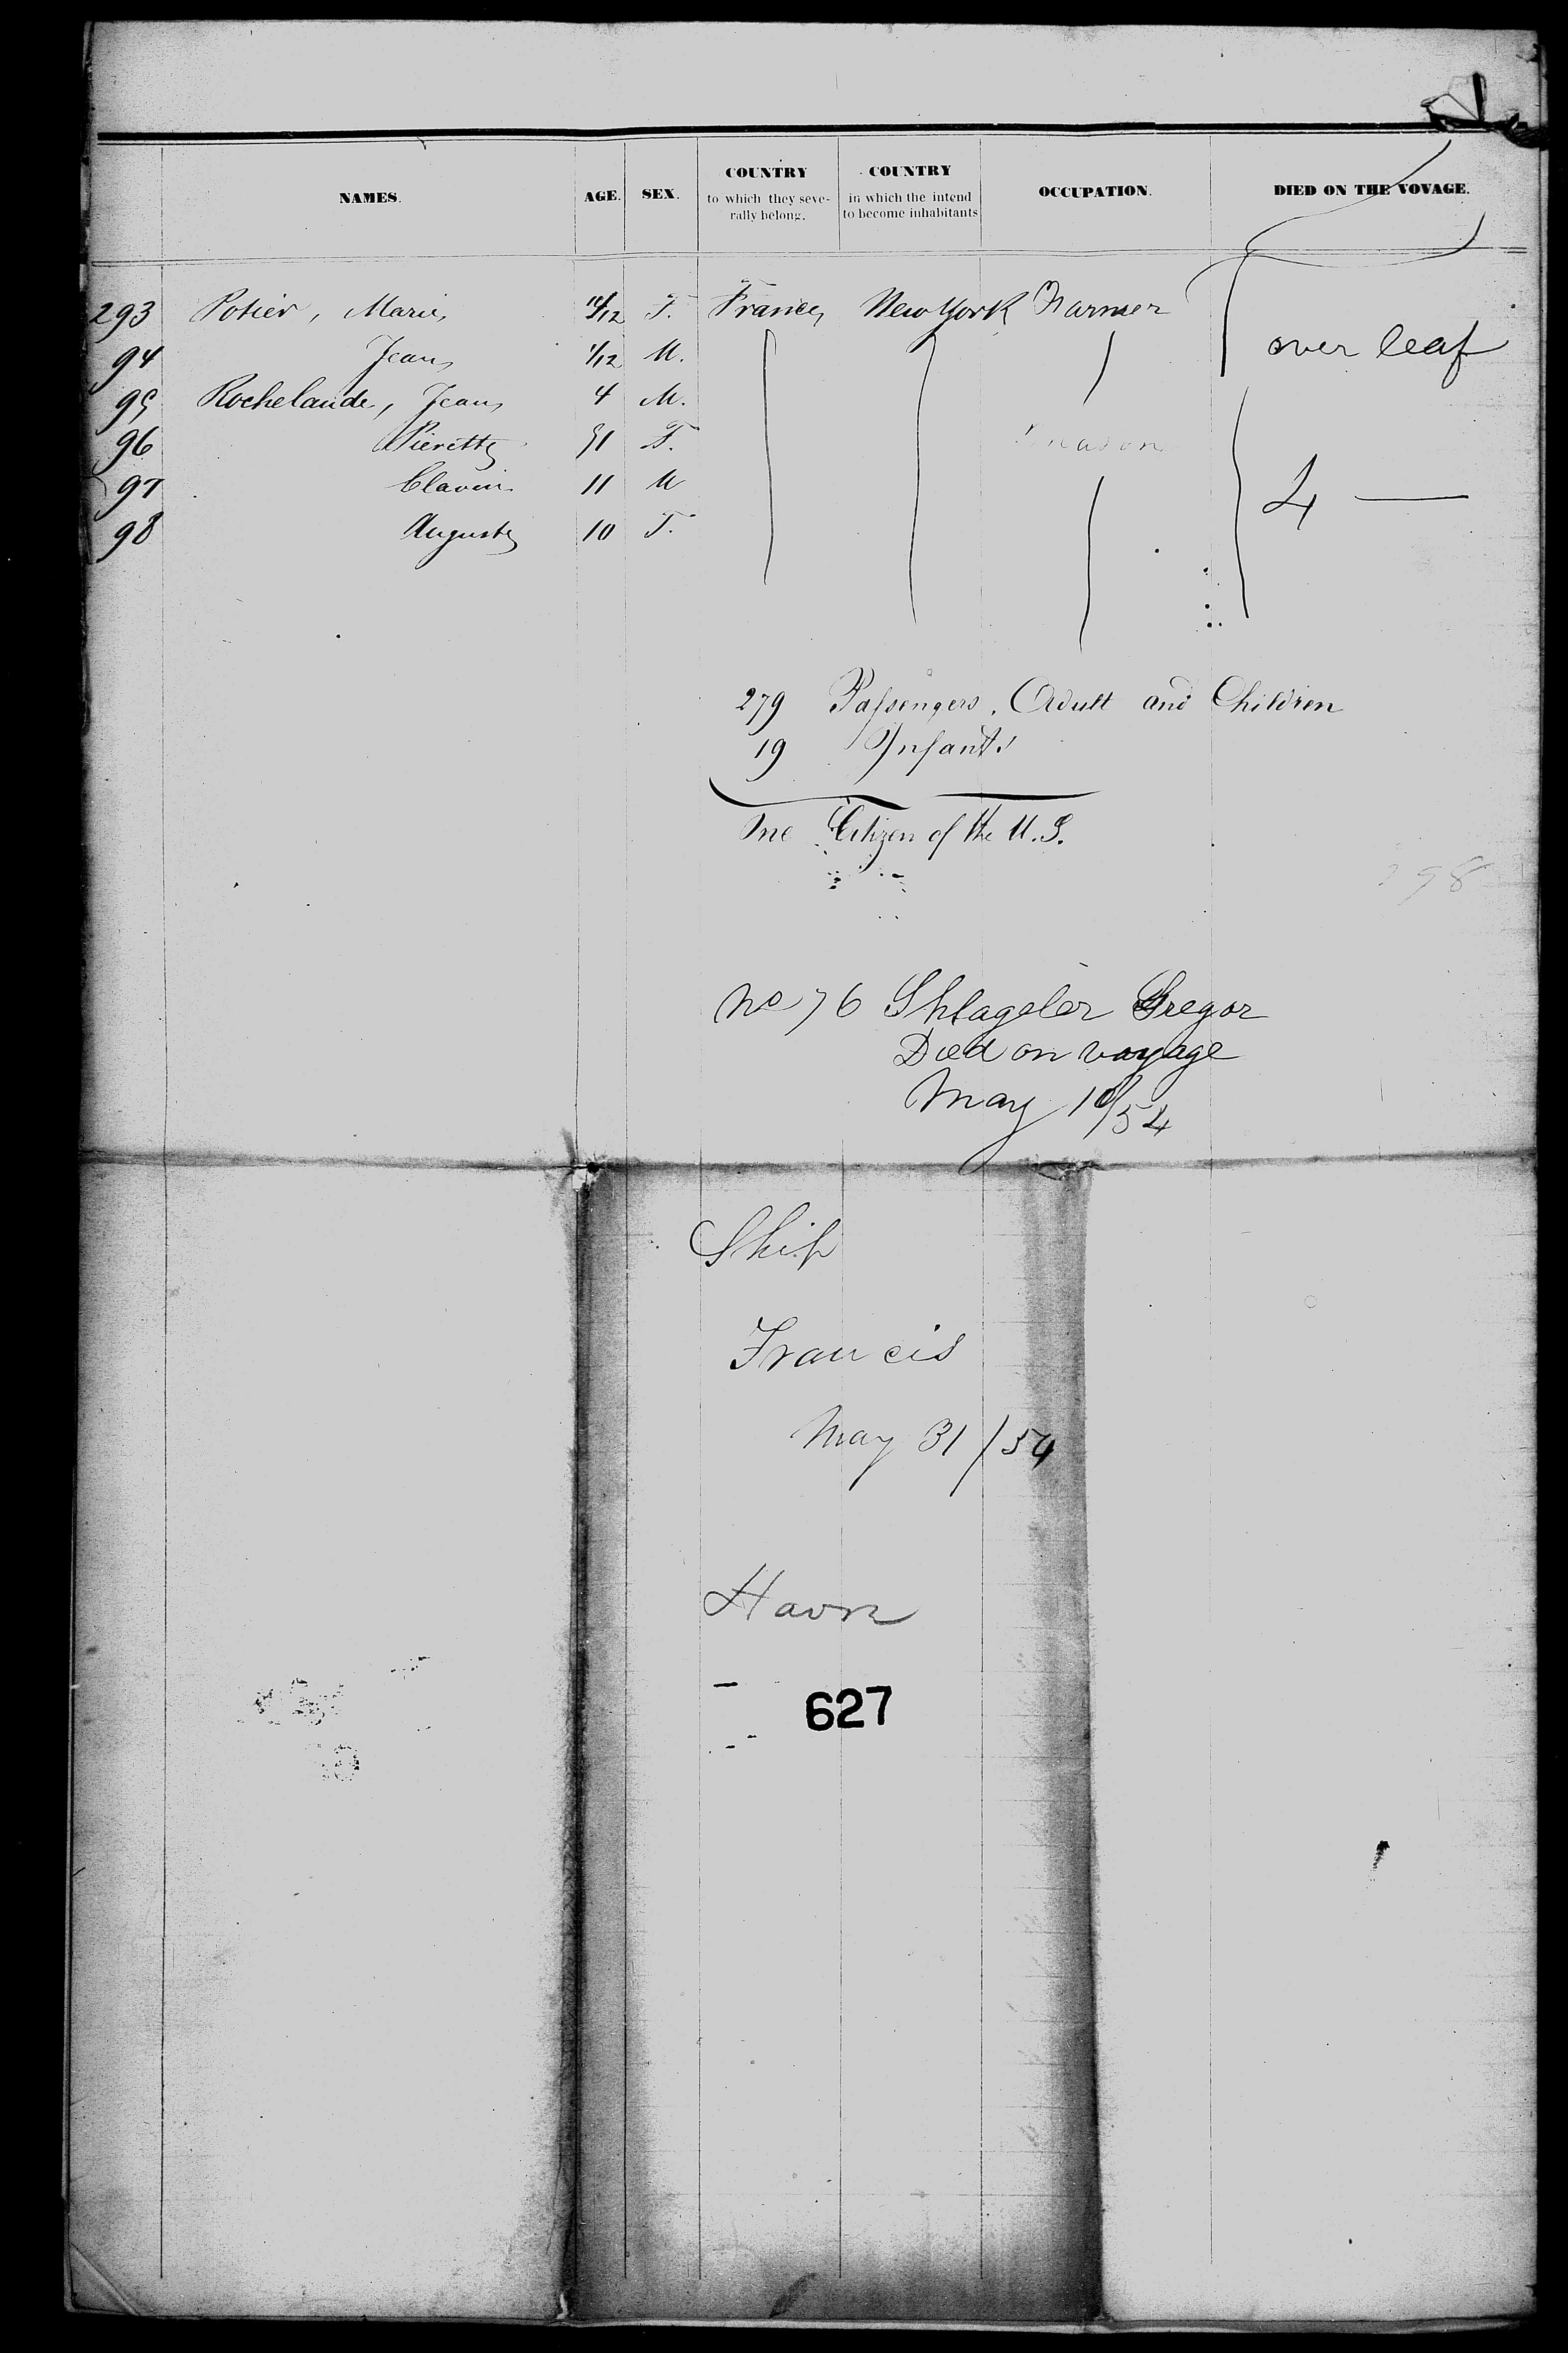 NAMES. AGE. SEX. COUNTRY to which they severally belong. COUNTRY in which the intend to become inhabitants OCCUPATION. DIED ON THE VOYAGE.
293 Potier, Marie 11/12 F. France New York Farmer
94 Jean 1/12 M. over leaf
95 Rochelande, Jean 4 M.
96 Pierette 31 F. mason
97 Clavin 11 M 4 —
98 Auguste 10 F.
279 Passengers, Adult and Children
19 Infants
One Citizen of the U.S.
298
No 76 Shlageler Gregor
Died on voyage
May 10/54
Ship
Francis
May 31/54
Havre
627